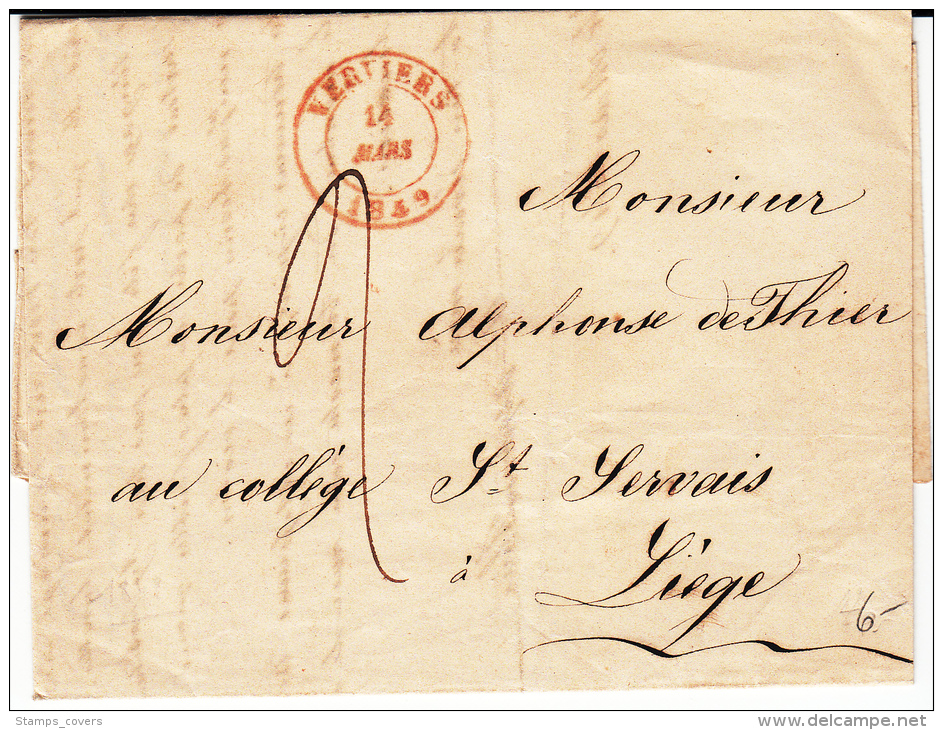 VERVIERS
14
MARS
1849
Monsieur
Monsieur Alphonse de Thier
au collège St Servais
à Liège
6-
Stamps_covers
www.delcampe.net